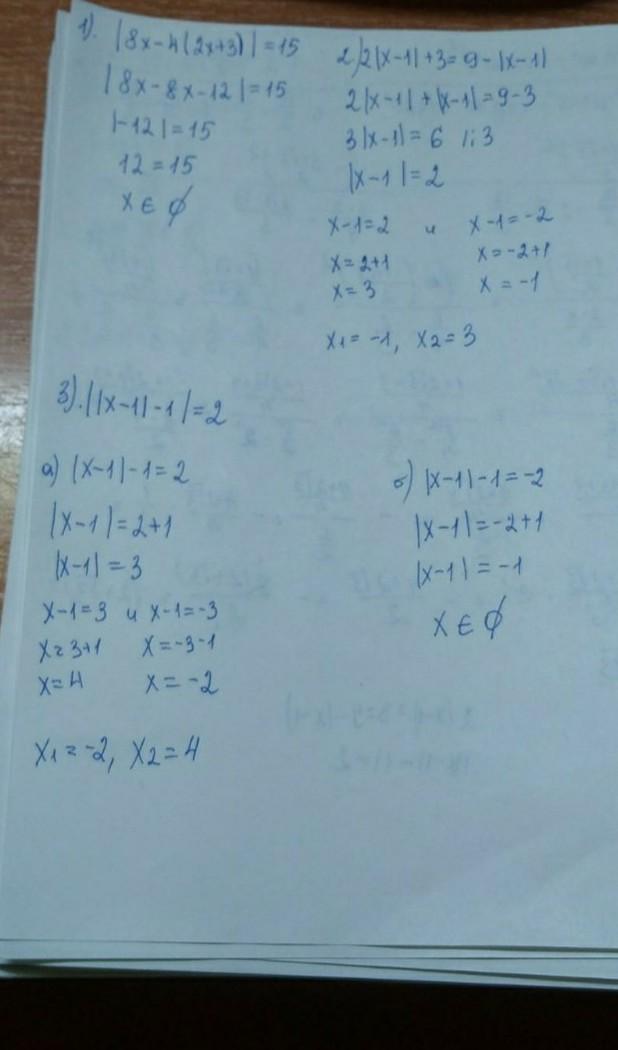 1). |8x-4(2x+3)|=15
|8x-8x-12|=15
|-12|=15
12=15
x ∈ ∅
2) 2|x-1|+3=9-|x-1|
2|x-1|+|x-1|=9-3
3|x-1|=6 |:3
|x-1|=2
x-1=2 и x-1=-2
x=2+1 x=-2+1
x=3 x=-1
x1=-1, x2=3
3). ||x-1|-1|=2
а) |x-1|-1=2
|x-1|=2+1
|x-1|=3
x-1=3 и x-1=-3
x=3+1 x=-3-1
x=4 x=-2
x1=-2, x2=4
б) |x-1|-1=-2
|x-1|=-2+1
|x-1|=-1
x ∈ ∅